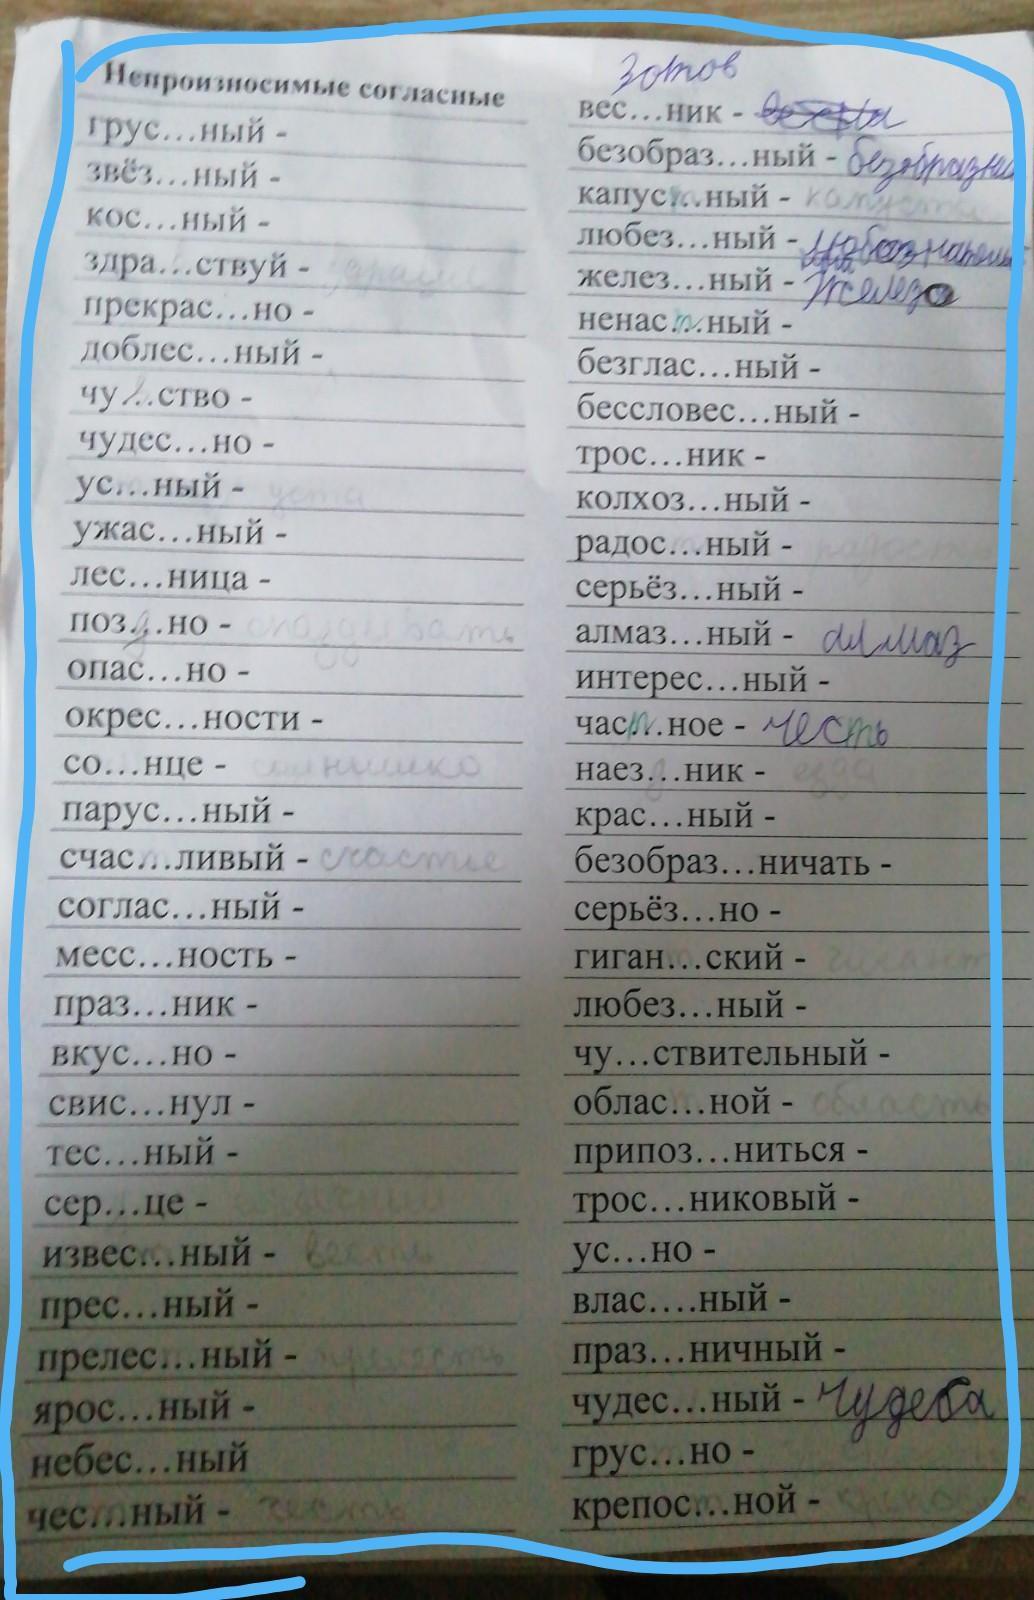 Непроизносимые согласные
грус...ный -
звёз...ный -
кос...ный -
здра...ствуй -
прекрас...но -
доблес...ный -
чу.в.ство -
чудес...но -
ус...ный - уста
ужас...ный -
лес...ница -
поз.д.но - опаздывать
опас...но -
окрес...ности -
со...нце - солнышко
парус...ный -
счас.т.ливый - счастье
соглас...ный -
месс...ность -
праз...ник -
вкус...но -
свис...нул -
тес...ный -
сер...це -
извес.т.ный - весть
прес...ный -
прелес...ный - прелесть
ярос...ный -
небес...ный
чес.т.ный - честь
Зотов
вес...ник -
безобраз...ный -
капус.т.ный - капуста
любез...ный -
желез...ный - железо
ненас.т.ный -
безглас...ный -
бессловес...ный -
трос...ник -
колхоз...ный -
радос...ный - радость
серьёз...ный -
алмаз...ный - алмаз
интерес...ный -
час.т.ное - честь
наез.д.ник - езда
крас...ный -
безобраз...ничать -
серьёз...но -
гиган.т.ский - гигант
любез...ный -
чу...ствительный -
облас.т.ной - область
припоз...ниться -
трос...никовый -
ус...но -
влас....ный -
праз...ничный -
чудес...ный - Чудеса
грус...но -
крепос.т.ной - крепость